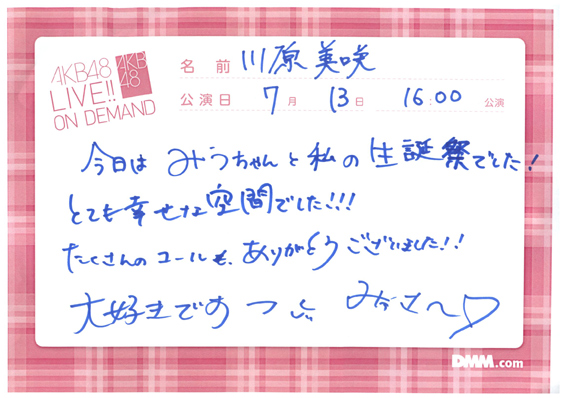 AKB48
LIVE!!
ON DEMAND
AKB
48
名 前 川原美咲
公演日 7月 13日 16:00 公演
今日は みうちゃんと私の生誕祭でした!
とても幸せな空間でした!!!
たくさんのコールも、ありがとうございました!!
大好きですっ
DMM.com